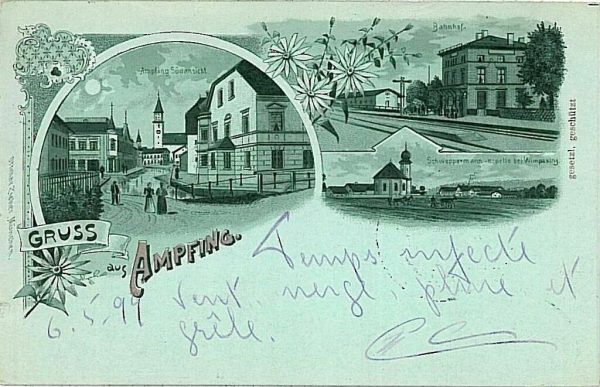 Ampfing Südansicht.
Bahnhof.
Schweppermann-Kapelle bei Wimpasing.
gesetzl. geschützt
GRUSS
aus AMPFING.
Temps infecte
6.5.99 Vent, neige, pluie et
grêle.